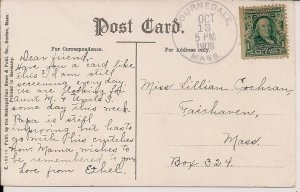 Post Card.
For Correspondence.
For Address only.
BOURNEDALE,
OCT
5
5 PM
1909
MASS.
Dear friend:-
Have you a card like
this? I am still
screening every day
we are looking for
Aunt M. + Uncle
some day this week.
Papa is still
improving but has to
go with his crutches
now Mama wishes
to be remembered to you
Love from Ethel.
Miss Lillian Cochran,
Fairhaven,
Mass.
Box 324.